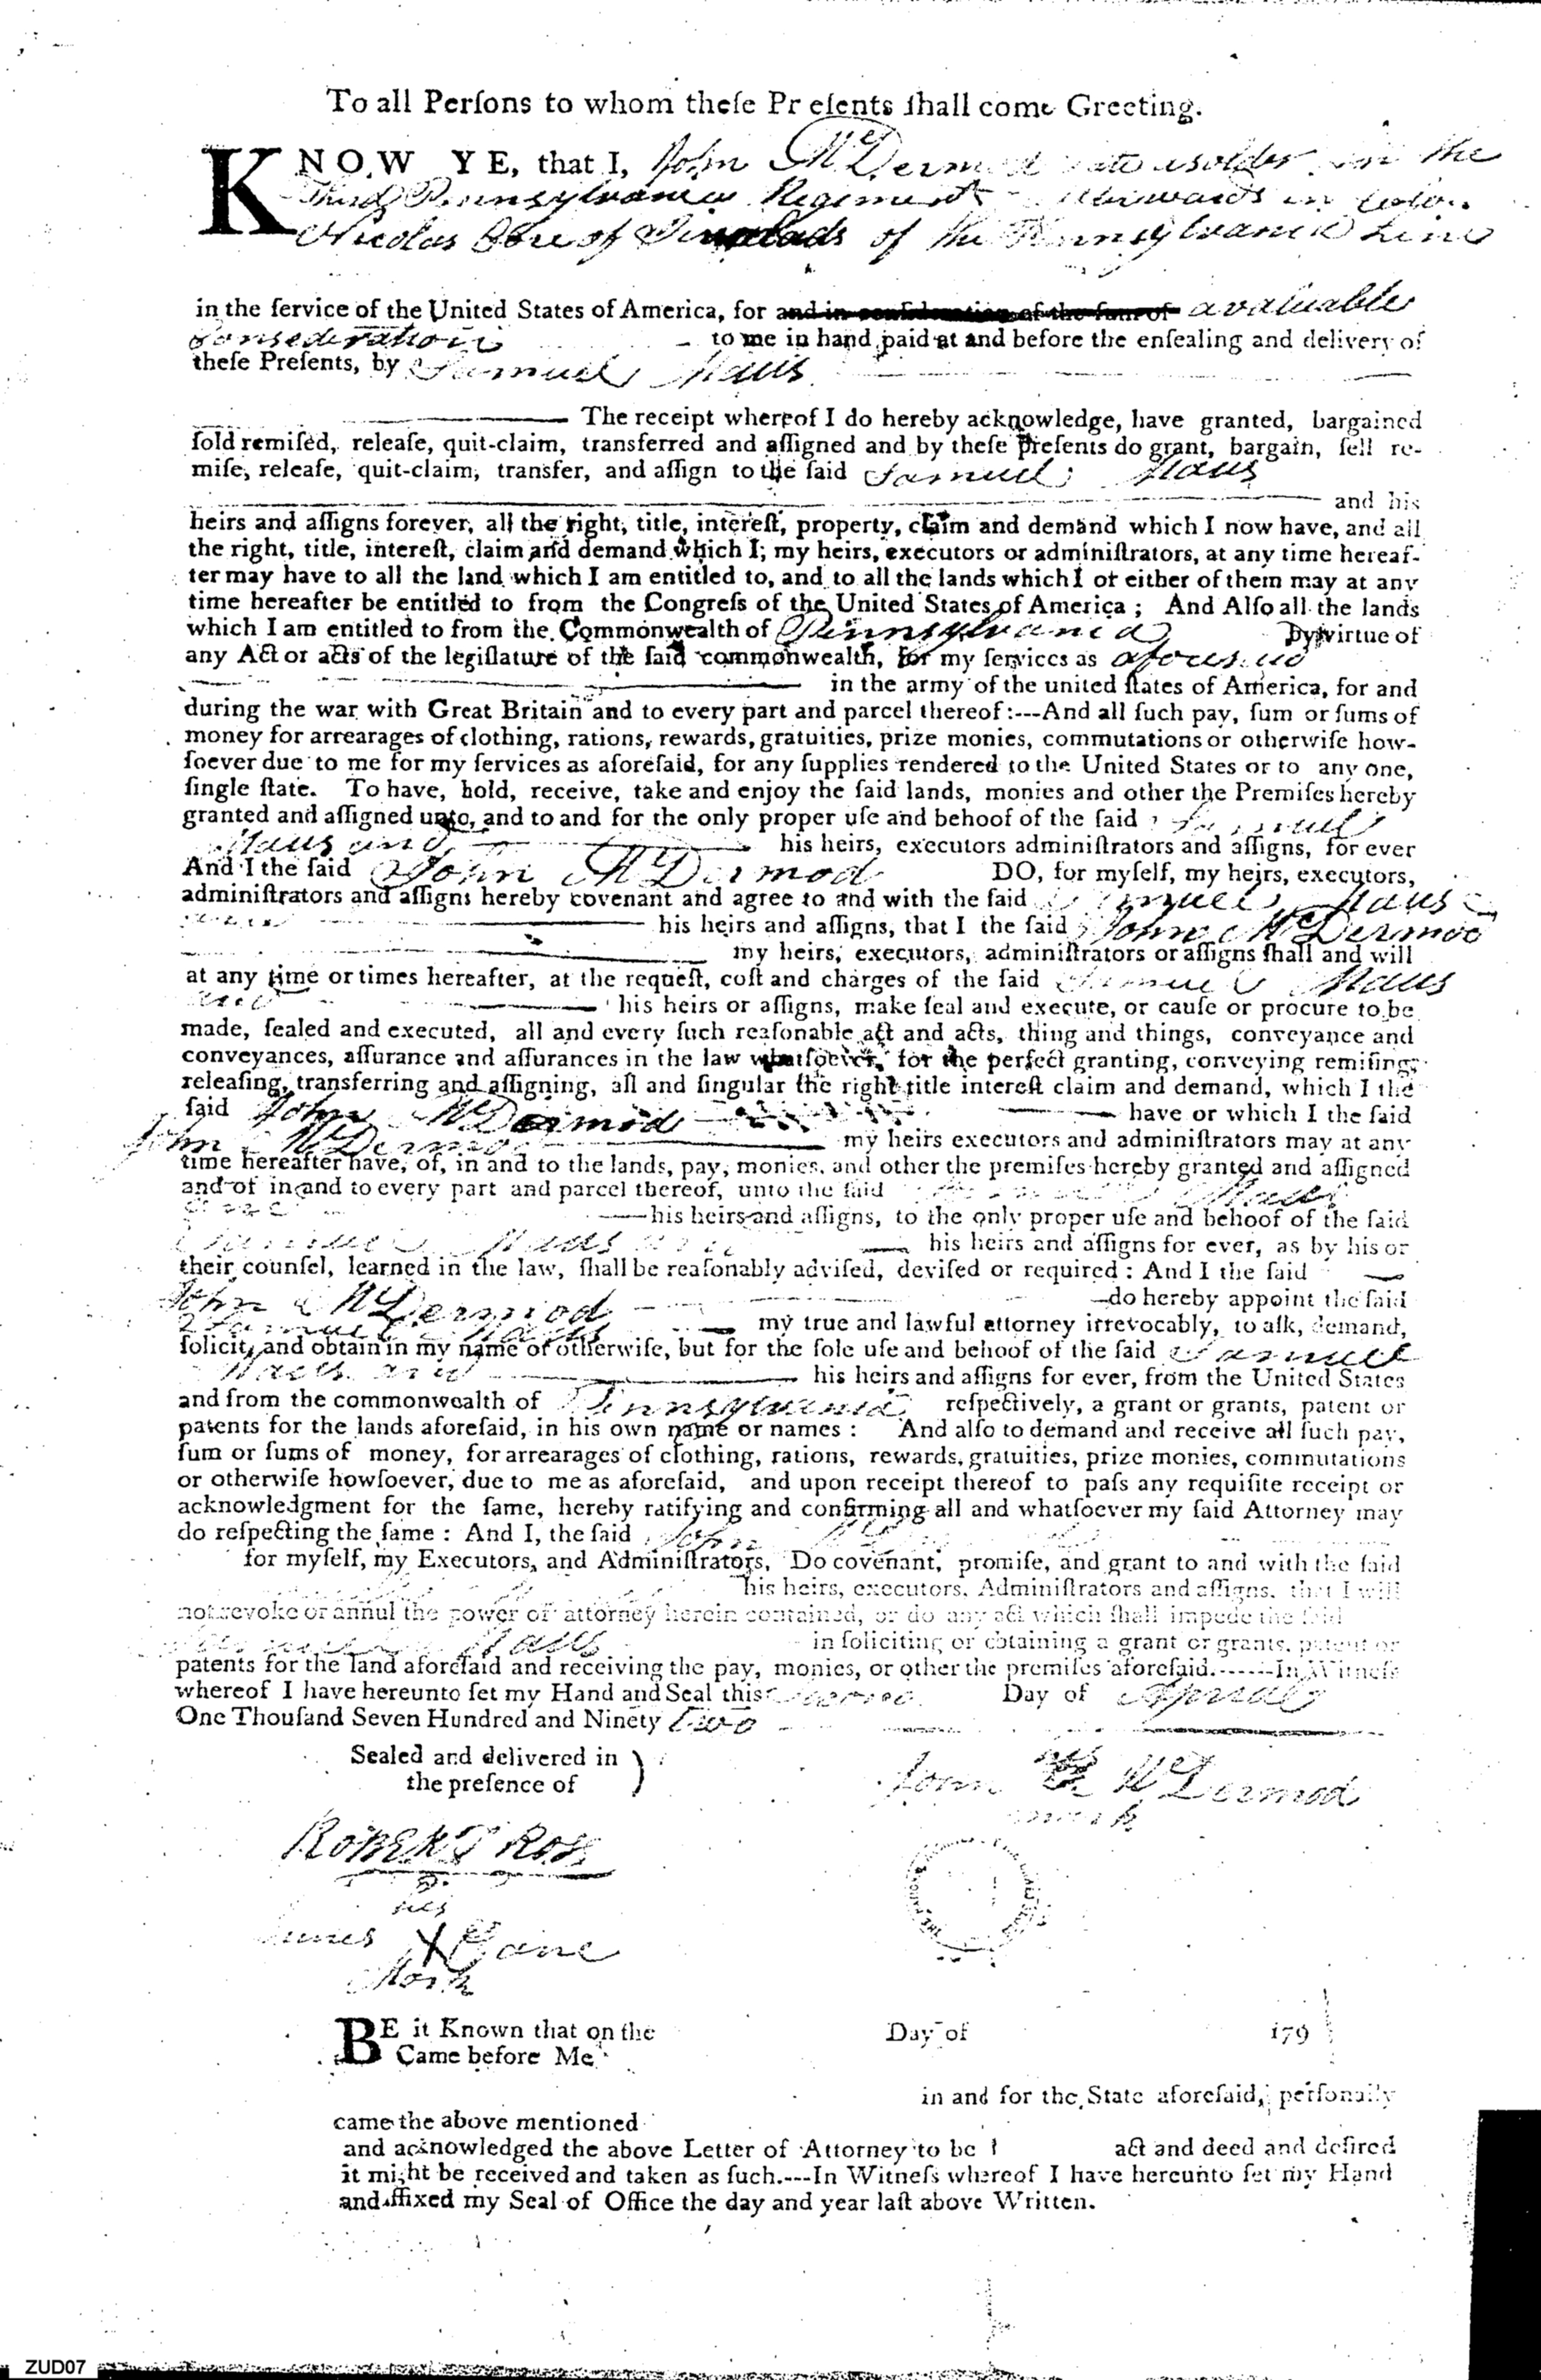 To all Perſons to whom theſe Pr eſents ſhall come Greeting.
KNOW YE, that I, John McDermod late a solder in the
Third Pennsylvania Regiment afterwards in
Nicolas of of the Pennsylvania Line
in the ſervice of the United States of America, for and in conſideration of the ſum of a valuable
Consederation to me in hand paid at and before the enſealing and delivery of
theſe Preſents, by Samuel Maus
The receipt whereof I do hereby acknowledge, have granted, bargained
ſold remiſed, releaſe, quit-claim, transferred and aſſigned and by theſe Preſents do grant, bargain, ſell re-
miſe, releaſe, quit-claim, transfer, and aſſign to the ſaid Samuel Maus
and his
heirs and aſſigns forever, all the right, title, intereſt, property, claim and demand which I now have, and all
the right, title, intereſt, claim and demand which I, my heirs, executors or adminiſtrators, at any time hereaf-
ter may have to all the land which I am entitled to, and to all the lands which I or either of them may at any
time hereafter be entitled to from the Congreſs of the United States of America ; And Alſo all the lands
which I am entitled to from the Commonwealth of Pennsylvania By virtue of
any Act or acts of the legiſlature of the ſaid commonwealth, for my ſervices as aforesaid
in the army of the united ſtates of America, for and
during the war with Great Britain and to every part and parcel thereof :---And all ſuch pay, ſum or ſums of
money for arrearages of clothing, rations, rewards, gratuities, prize monies, commutations or otherwiſe how-
ſoever due to me for my ſervices as aforeſaid, for any ſupplies rendered to the United States or to any one,
ſingle ſtate. To have, hold, receive, take and enjoy the ſaid lands, monies and other the Premiſes hereby
granted and aſſigned unto, and to and for the only proper uſe and behoof of the ſaid Samuel
Maus and his heirs, executors adminiſtrators and aſſigns, for ever
And I the ſaid John McDermod DO, for myſelf, my heirs, executors,
adminiſtrators and aſſigns hereby covenant and agree to and with the ſaid Samuel Maus
his heirs and aſſigns, that I the ſaid John McDermod
my heirs, executors, adminiſtrators or aſſigns ſhall and will
at any time or times hereafter, at the requeſt, coſt and charges of the ſaid Samuel Maus
and his heirs or aſſigns, make ſeal and execute, or cauſe or procure to be
made, ſealed and executed, all and every ſuch reaſonable act and acts, thing and things, conveyance and
conveyances, aſſurance and aſſurances in the law whatſoever, for the perfect granting, conveying remiſing,
releaſing, transferring and aſſigning, all and ſingular the right title intereſt claim and demand, which I the
ſaid John McDermod have or which I the ſaid
John McDermod my heirs executors and adminiſtrators may at any
time hereafter have, of, in and to the lands, pay, monies, and other the premiſes hereby granted and aſſigned
and of in and to every part and parcel thereof, unto the ſaid Maus
his heirs and aſſigns, to the only proper uſe and behoof of the ſaid
Samuel Maus and his heirs and aſſigns for ever, as by his or
their counſel, learned in the law, ſhall be reaſonably adviſed, deviſed or required : And I the ſaid
John McDermod do hereby appoint the ſaid
Samuel Maus my true and lawful attorney irrevocably, to aſk, demand,
ſolicit, and obtain in my name or otherwiſe, but for the ſole uſe and behoof of the ſaid Samuel
Maus and his heirs and aſſigns for ever, from the United States
and from the commonwealth of Pennsylvania reſpectively, a grant or grants, patent or
patents for the lands aforeſaid, in his own name or names : And alſo to demand and receive all ſuch pay,
ſum or ſums of money, for arrearages of clothing, rations, rewards, gratuities, prize monies, commutations
or otherwiſe howſoever, due to me as aforeſaid, and upon receipt thereof to paſs any requiſite receipt or
acknowledgment for the ſame, hereby ratifying and confirming all and whatſoever my ſaid Attorney may
do reſpecting the ſame : And I, the ſaid John
for myſelf, my Executors, and Adminiſtrators, Do covenant, promiſe, and grant to and with the ſaid
his heirs, executors. Adminiſtrators and aſſigns, that I will
not revoke or annul the power of attorney herein contained, or do any act which ſhall impede the ſaid
Samuel Maus in ſoliciting or obtaining a grant or grants, patent or
patents for the land aforeſaid and receiving the pay, monies, or other the premiſes aforeſaid.------In Witneſs
whereof I have hereunto ſet my Hand and Seal this Second Day of Aprial
One Thouſand Seven Hundred and Ninety two
Sealed and delivered in )
the preſence of
his
John McDermod
mark
ROBERT Ross
his
James X Gane
Mark
BE it Known that on the Day of 179
Came before Me
in and for the State aforeſaid, perſonally
came the above mentioned
and acknowledged the above Letter of Attorney to be act and deed and deſired
it might be received and taken as ſuch.---In Witneſs whereof I have hereunto ſet my Hand
and affixed my Seal of Office the day and year laſt above Written.
ZUD07